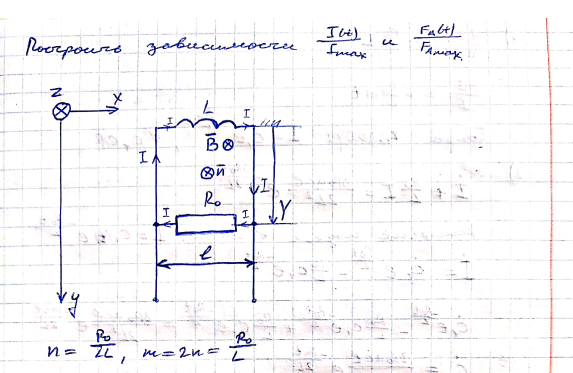 Построить зависимости I(t)/Imax и FA(t)/FAmax
Z
x
L
I I
B̄ ⊗
I
⊗ n̄
I
R₀
Y
I I
l
y
n = R₀/2L, m = 2n = R₀/L